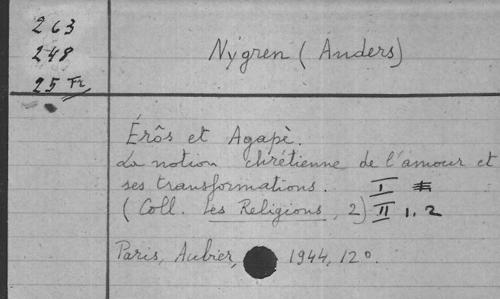 263
248
25 Fr
Nygren (Anders)
Érôs et Agapè.
La notion chrétienne de l'amour et
ses transformations. I
(Coll. Les Religions, 2) II 1. 2
Paris, Aubier, 1944, 12°.